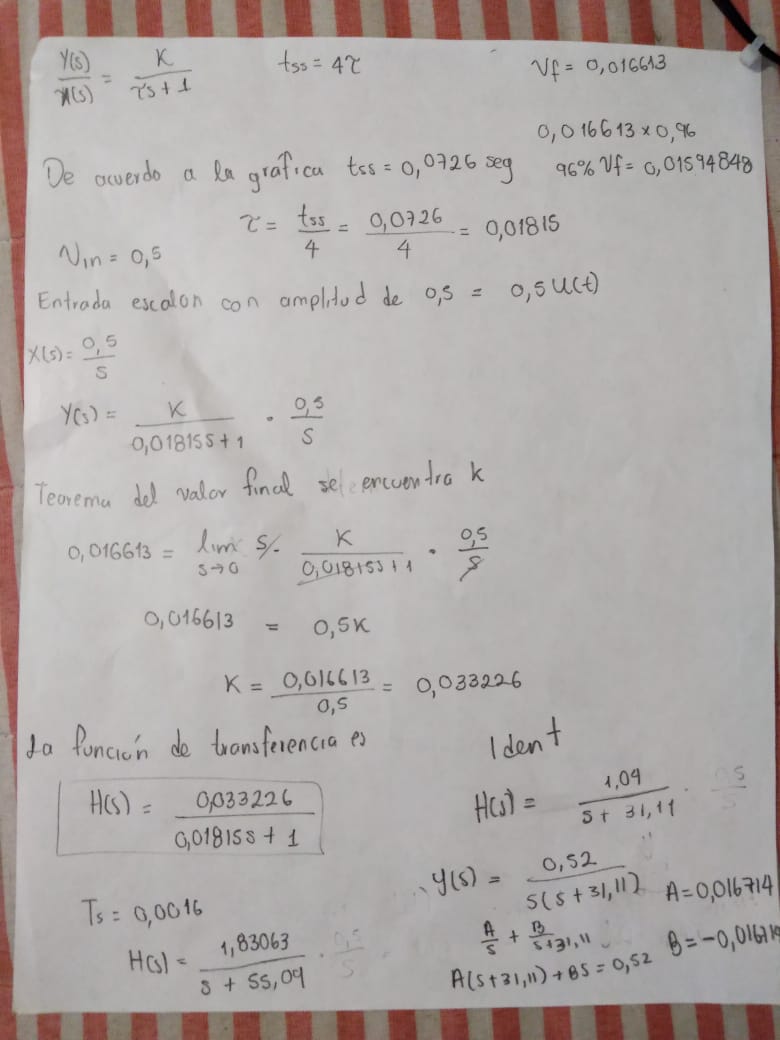 Y(s)/X(s) = K/(τs + 1)    tss = 4τ    Vf = 0,016613
0,016613 x 0,96
De acuerdo a la gráfica tss = 0,0726 seg    96% Vf = 0,01594848
τ = tss/4 = 0,0726/4 = 0,01815
Vin = 0,5
Entrada escalon con amplitud de 0,5 = 0,5 u(t)
X(s) = 0,5/s
Y(s) = K/(0,01815s + 1) · 0,5/s
Teorema del valor final se encuentra k
0,016613 = lim s→0 s · K/(0,01815s + 1) · 0,5/s
0,016613 = 0,5K
K = 0,016613/0,5 = 0,033226
La función de transferencia es
H(s) = 0,033226/(0,01815s + 1)
Ts = 0,0016
H(s) = 1,83063/(s + 55,09) · 0,5/s
Ident
H(s) = 1,04/(s + 31,11) · 0,5/s
Y(s) = 0,52/(s(s + 31,11))    A = 0,016714
A/s + B/(s + 31,11)    B = -0,01671
A(s + 31,11) + Bs = 0,52